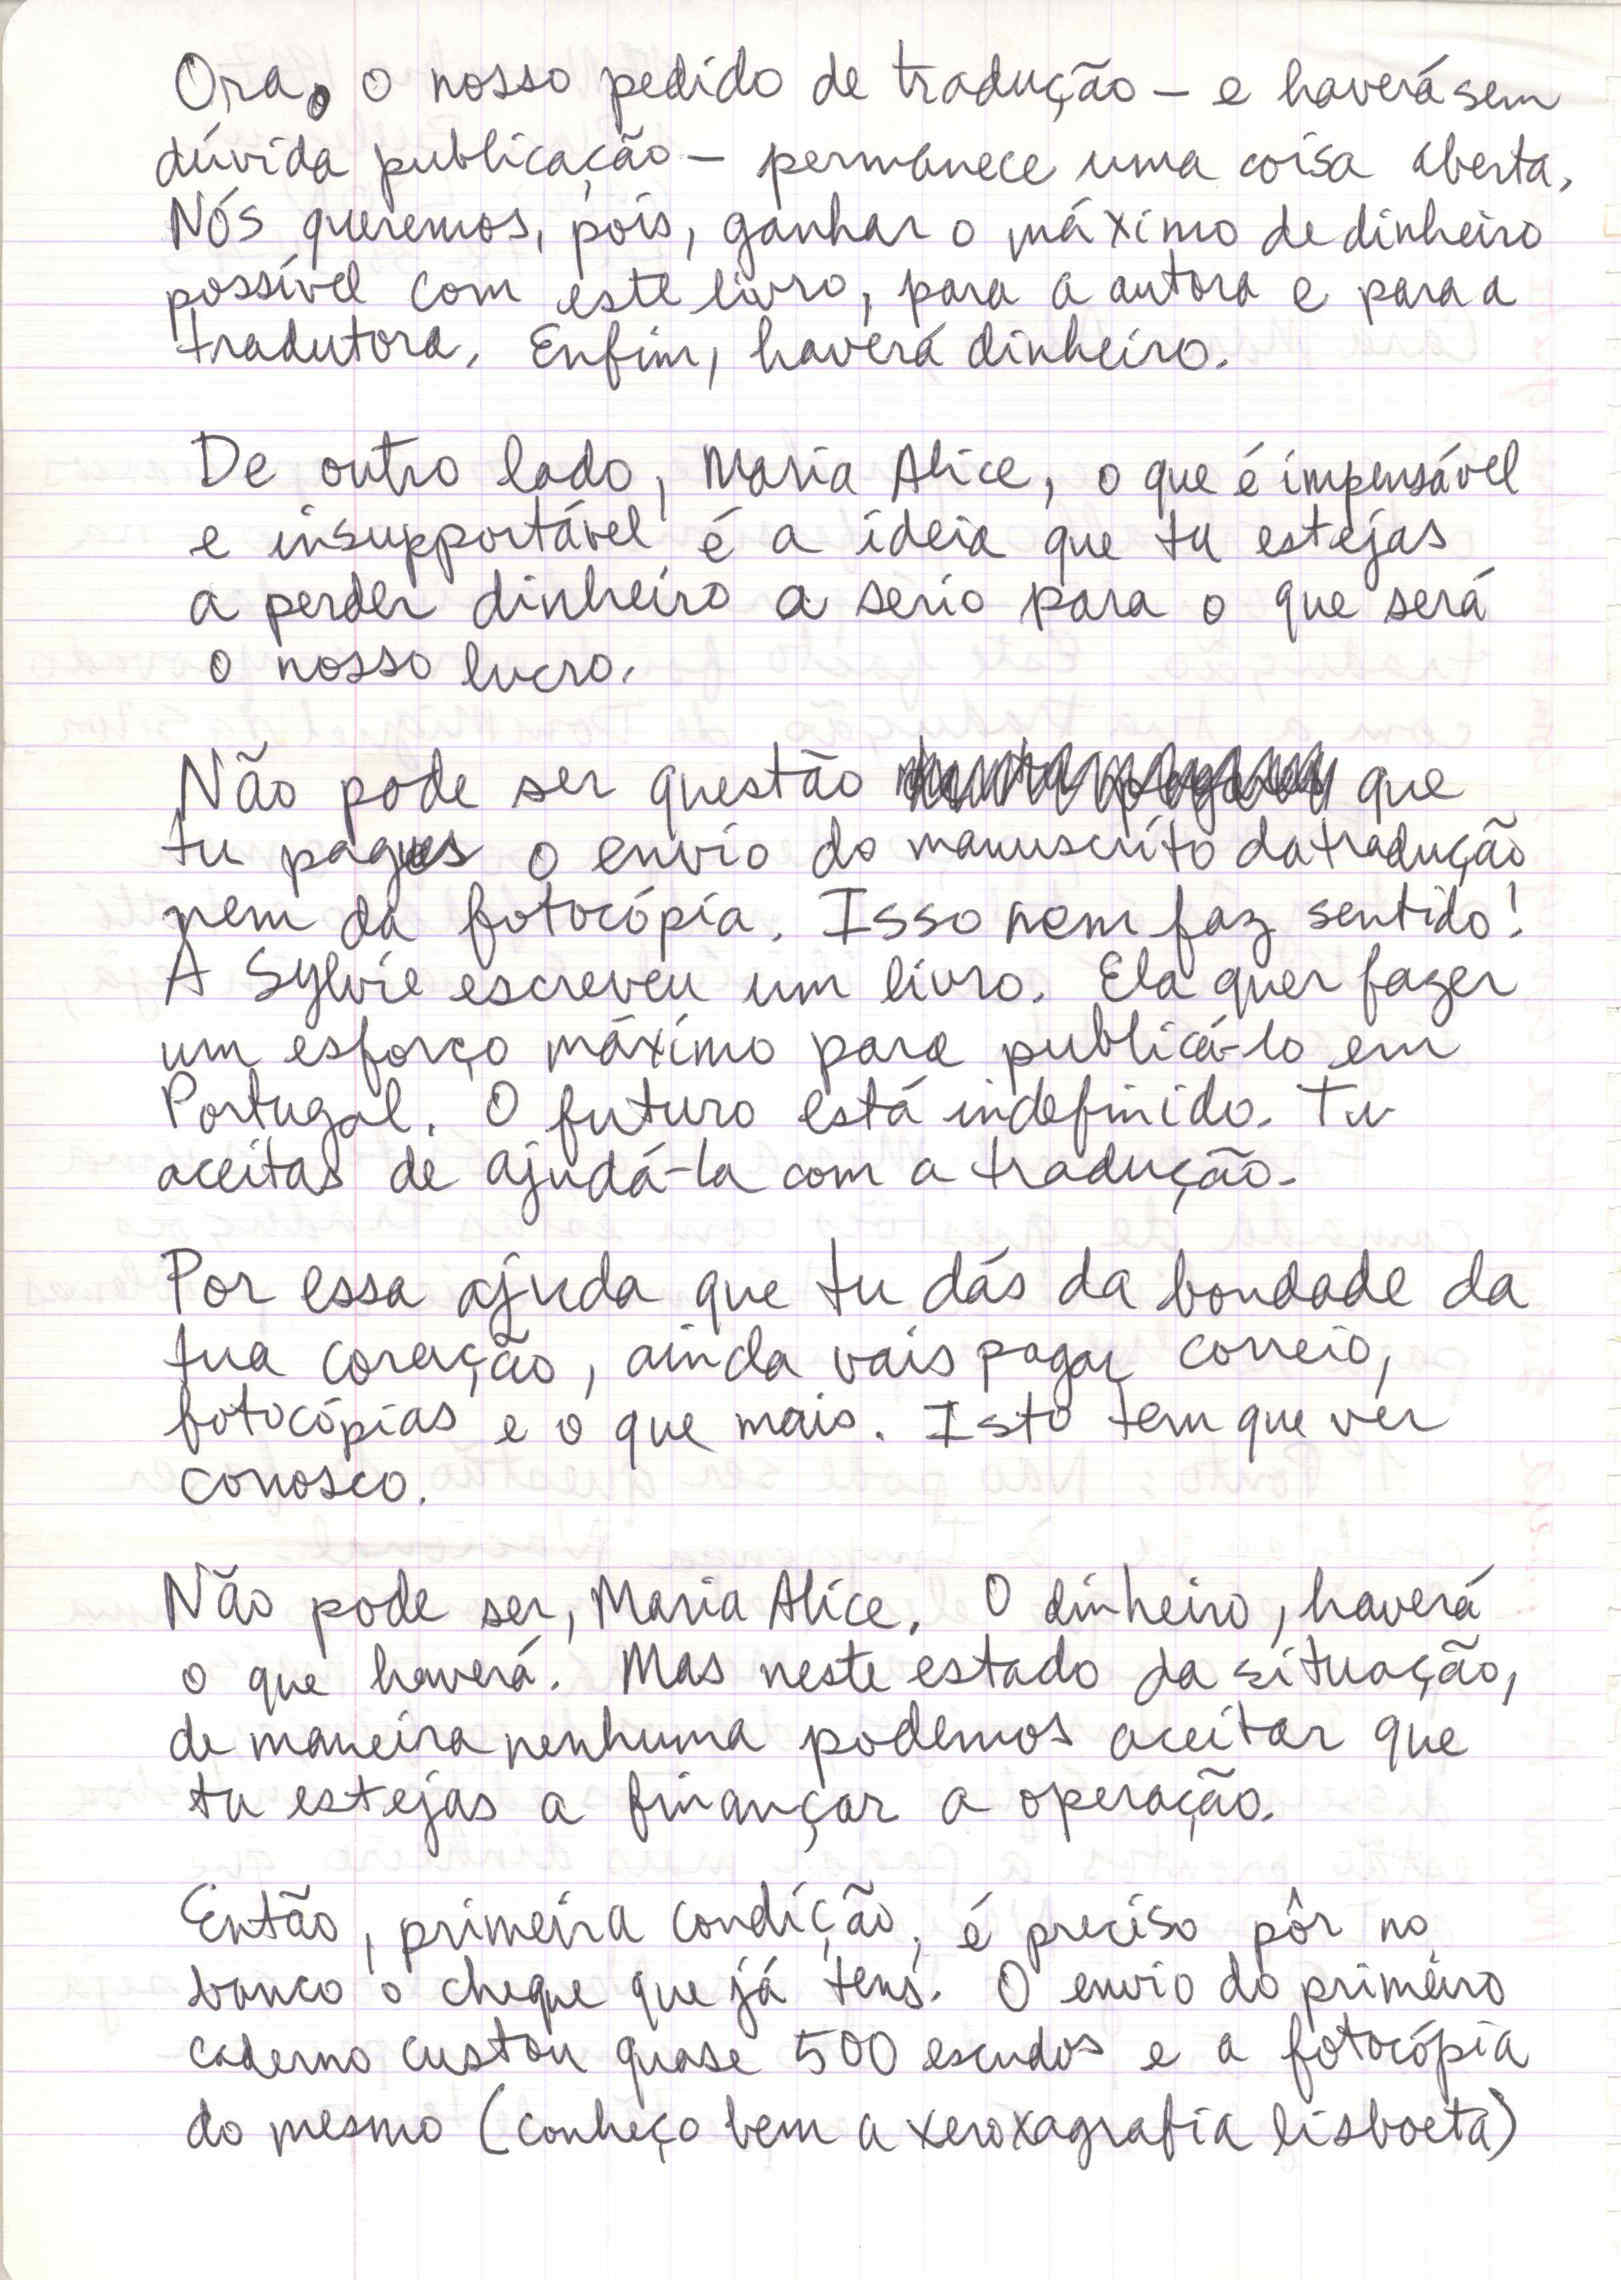 Ora, o nosso pedido de tradução – e haverá sem
dúvida publicação – permanece uma coisa aberta.
Nós queremos, pois, ganhar o máximo de dinheiro
possível com este livro, para a autora e para a
tradutora. Enfim, haverá dinheiro.
De outro lado, Maria Alice, o que é impensável
e insupportável é a ideia que tu estejas
a perder dinheiro a serio para o que será
o nosso lucro.
Não pode ser questão que
tu pagues o envio do manuscrito da tradução
nem da fotocópia. Isso nem faz sentido!
A Sylvie escreveu um livro. Ela quer fazer
um esforço máximo para publicá-lo em
Portugal. O futuro está indefinido. Tu
aceitas de ajudá-la com a tradução.
Por essa ajuda que tu dás da bondade da
tua coração, ainda vais pagar correio,
fotocópias e o que mais. Isto tem que ver
conosco.
Não pode ser, Maria Alice. O dinheiro, haverá
o que haverá. Mas neste estado da situação,
de maneira nenhuma podemos aceitar que
tu estejas a finançar a operação.
Então, primeira condição, é preciso pôr no
banco o cheque que já tens. O envio do primeiro
caderno custou quase 500 escudos e a fotocópia
do mesmo (conheço bem a xeroxagrafia lisboeta)